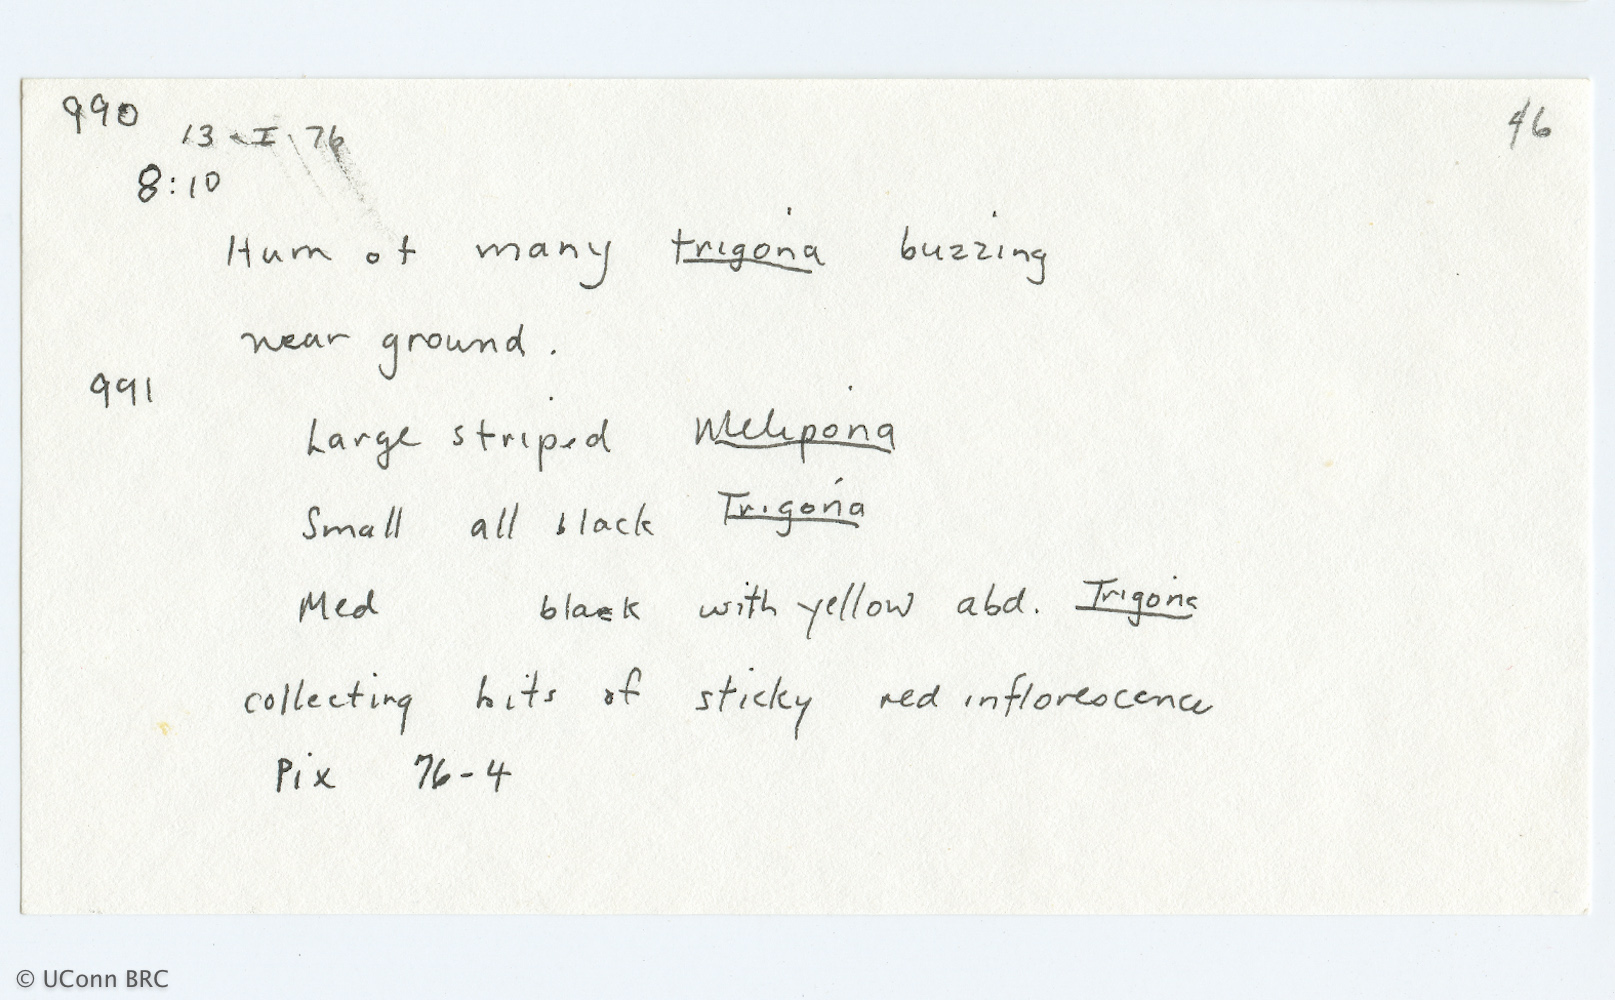 990
13-I-76
46
8:10
Hum of many trigona buzzing
near ground.
991
Large striped Melipona
Small all black Trigona
Med black with yellow abd. Trigona
collecting bits of sticky red inflorescence
Pix 76-4
© UConn BRC